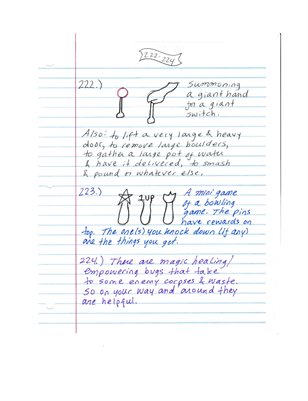 222-224
222.)
Summoning
a giant hand
for a giant
switch.
Also: to lift a very large & heavy
door, to remove large boulders,
to gather a large pot of water
& have it delivered, to smash
& pound or whatever else.
223.)
1up
A mini game
of a bowling
game. The pins
have rewards on
top. The one(s) you knock down (if any)
are the things you get.
224.) There are magic healing/
empowering bugs that take
to some enemy corpses & waste.
So on your way and around they
are helpful.